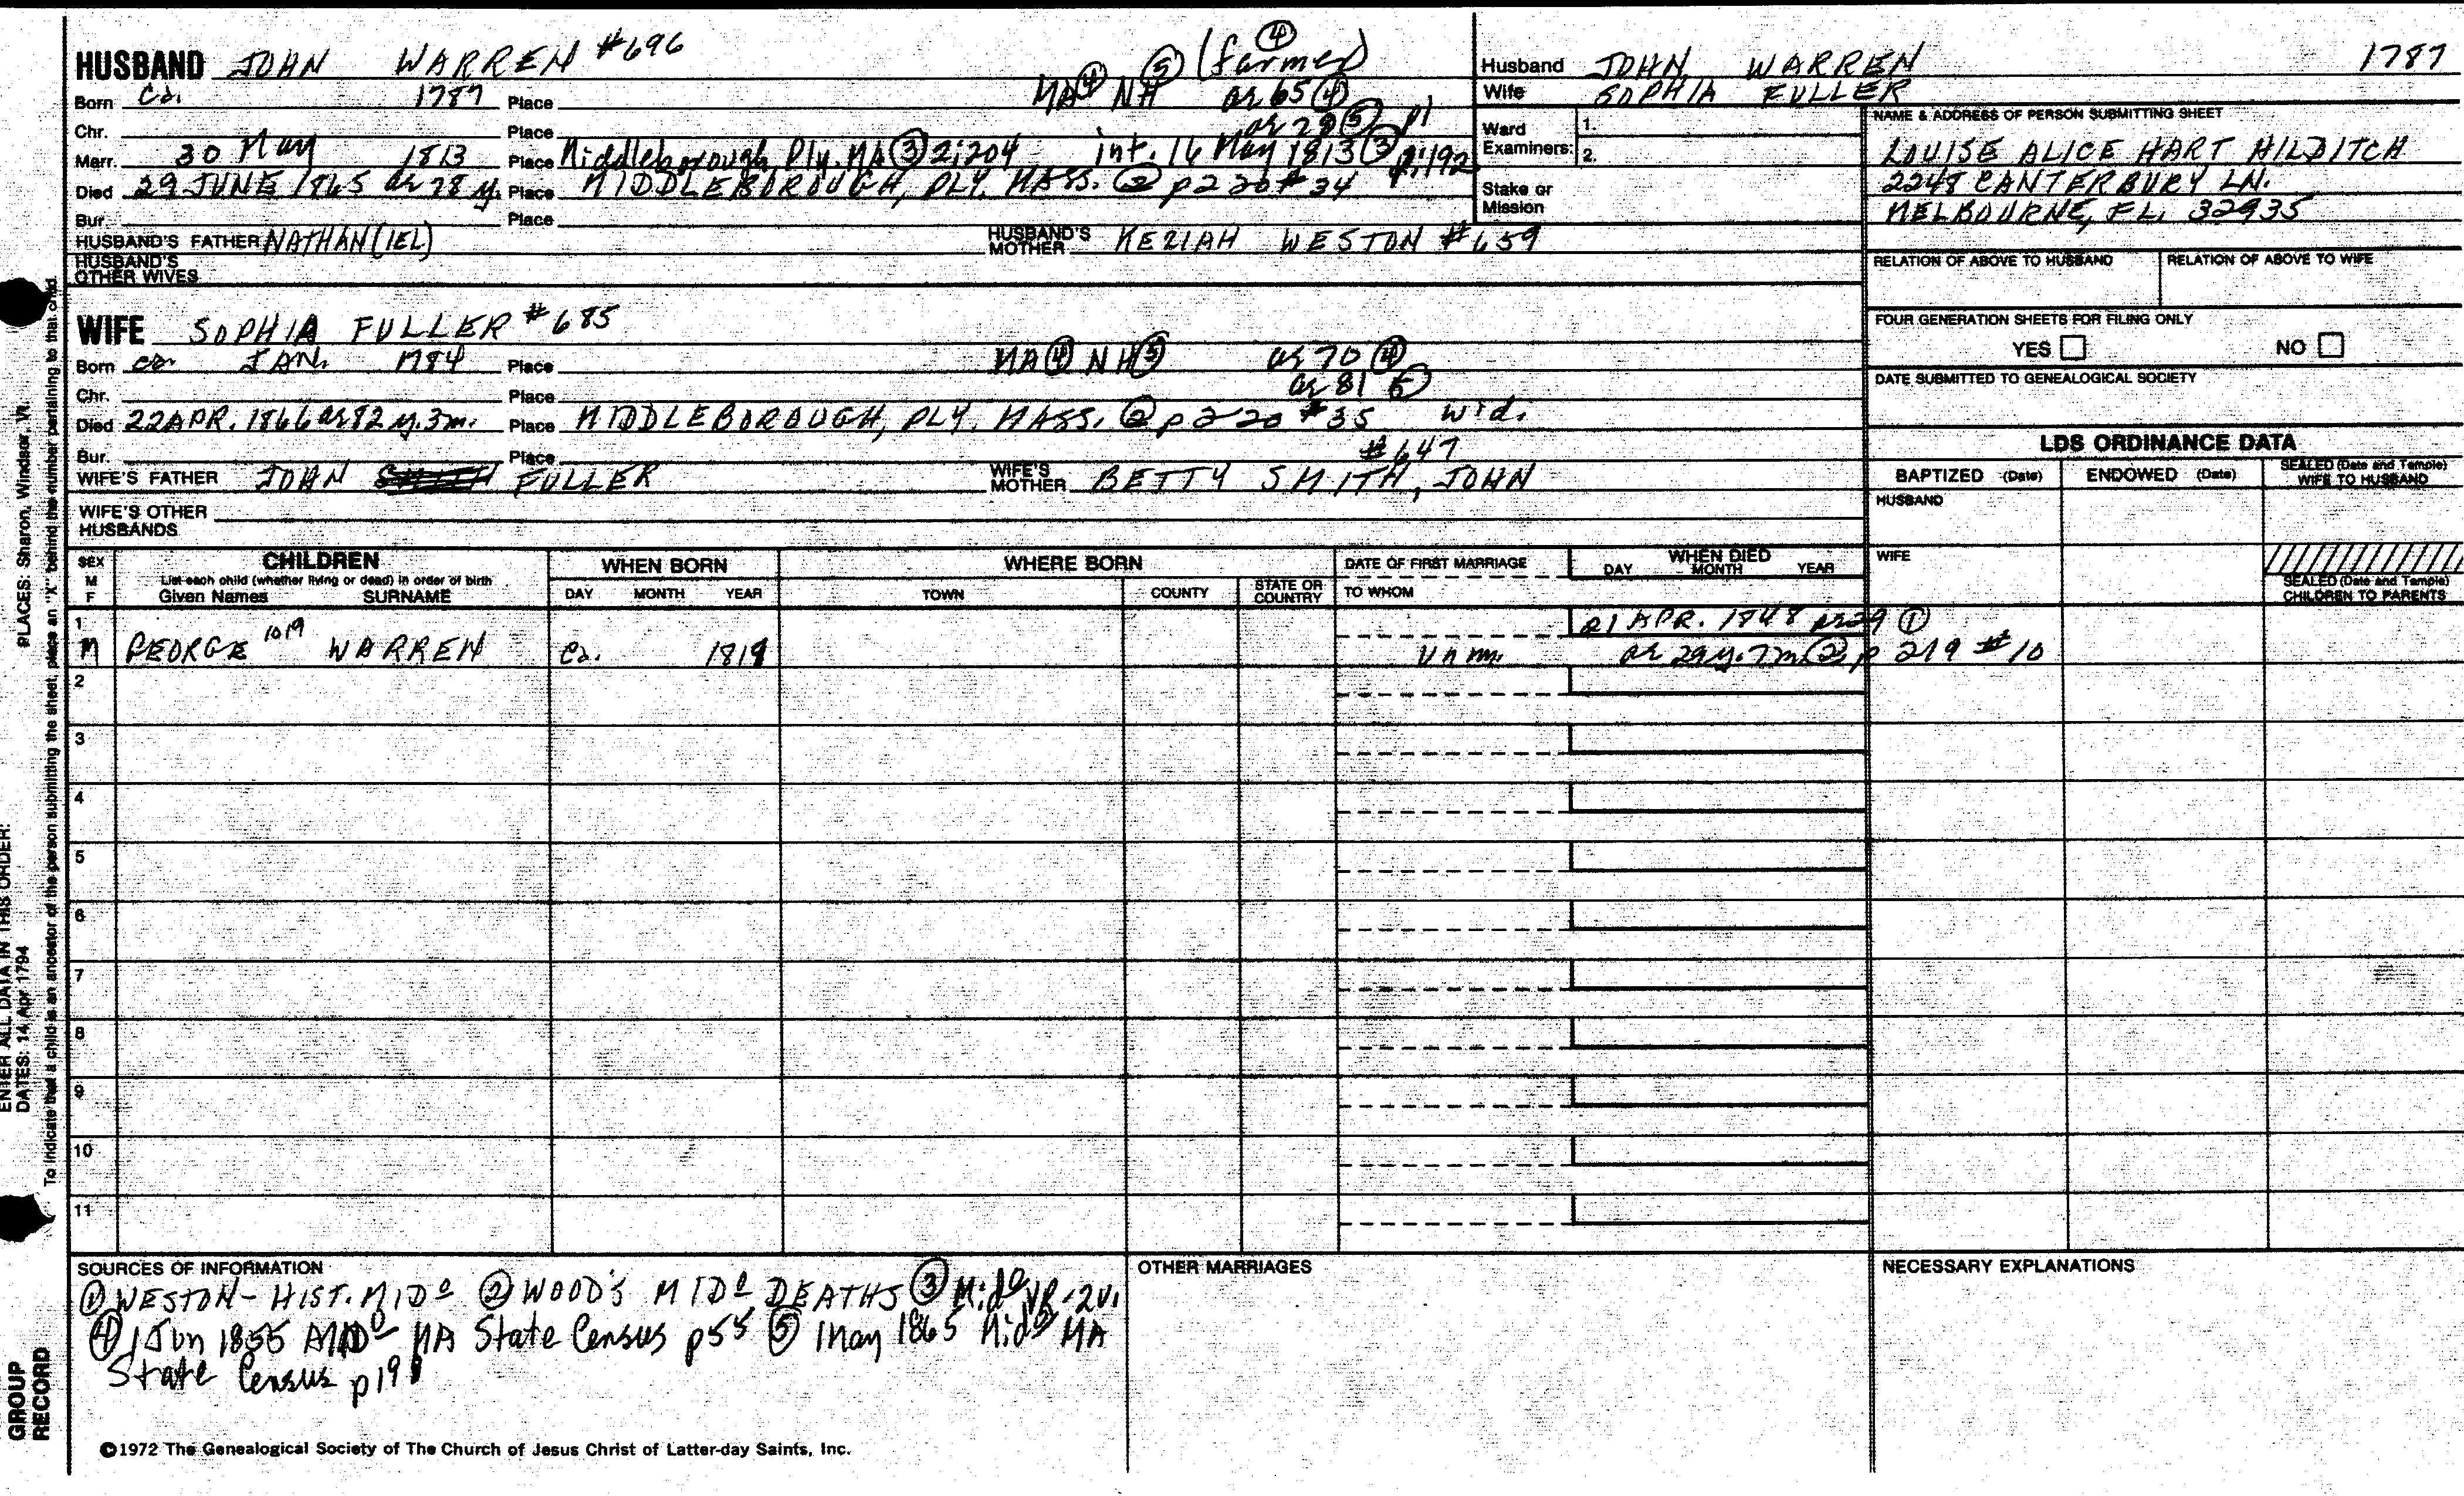 HUSBAND JOHN WARREN #696
MA ④ NH ⑤ (farmer) ④
Born ca. 1787 Place ae 65 ④
Chr. Place ae 78 ⑤ p1
Marr. 30 May 1813 Place Middleborough, Ply. MA ③ 2:204 int. 16 May 1813 ③ p:192
Died 29 JUNE 1865 ae 78 y. Place MIDDLEBOROUGH, PLY. MASS. ② p 220 # 34
Bur. Place
HUSBAND'S FATHER NATHAN(IEL) HUSBAND'S MOTHER KEZIAH WESTON #659
HUSBAND'S OTHER WIVES
WIFE SOPHIA FULLER #685
Born ca. JAN. 1784 Place MA ④ NH ⑤ ae 70 ④
Chr. Place ae 81 ⑤
Died 22 APR. 1866 ae 82 y. 3 m. Place MIDDLEBOROUGH, PLY. MASS. ② p 220 #35 wid.
Bur. Place #647
WIFE'S FATHER JOHN SMITH FULLER WIFE'S MOTHER BETTY SMITH, JOHN
WIFE'S OTHER HUSBANDS
Husband JOHN WARREN 1787
Wife SOPHIA FULLER
Ward Examiners: 1.
2.
Stake or Mission
NAME & ADDRESS OF PERSON SUBMITTING SHEET
LOUISE ALICE HART HILDITCH
2248 CANTERBURY LN.
MELBOURNE, FL. 32935
RELATION OF ABOVE TO HUSBAND RELATION OF ABOVE TO WIFE
FOUR GENERATION SHEETS FOR FILING ONLY
YES NO
DATE SUBMITTED TO GENEALOGICAL SOCIETY
LDS ORDINANCE DATA
BAPTIZED (Date) ENDOWED (Date) SEALED (Date and Temple) WIFE TO HUSBAND
HUSBAND
WIFE
SEALED (Date and Temple) CHILDREN TO PARENTS
SEX M F
CHILDREN
List each child (whether living or dead) in order of birth
Given Names SURNAME
WHEN BORN
DAY MONTH YEAR
WHERE BORN
TOWN COUNTY STATE OR COUNTRY
DATE OF FIRST MARRIAGE
TO WHOM
WHEN DIED
DAY MONTH YEAR
1 21 APR. 1848 ae 29 ①
M GEORGE 1019 WARREN ca. 1818 Unm. ae 29 y. 7 m ② p 219 #10
2
3
4
5
6
7
8
9
10
11
SOURCES OF INFORMATION
① WESTON - HIST. MIDo ② WOOD'S MIDo DEATHS ③ Mido VR-2vi
④ 1 Jun 1855 MIDo MA State Census p55 ⑤ 1 May 1865 Mido MA
State Census p191
OTHER MARRIAGES
NECESSARY EXPLANATIONS
©1972 The Genealogical Society of The Church of Jesus Christ of Latter-day Saints, Inc.
PLACES: Sharon, Windsor, Vt.
To indicate that a child is an ancestor of the person submitting the sheet, place an "X" behind the number pertaining to that child.
ENTER ALL DATA IN THIS ORDER:
DATES: 14 Apr 1794
GROUP
RECORD